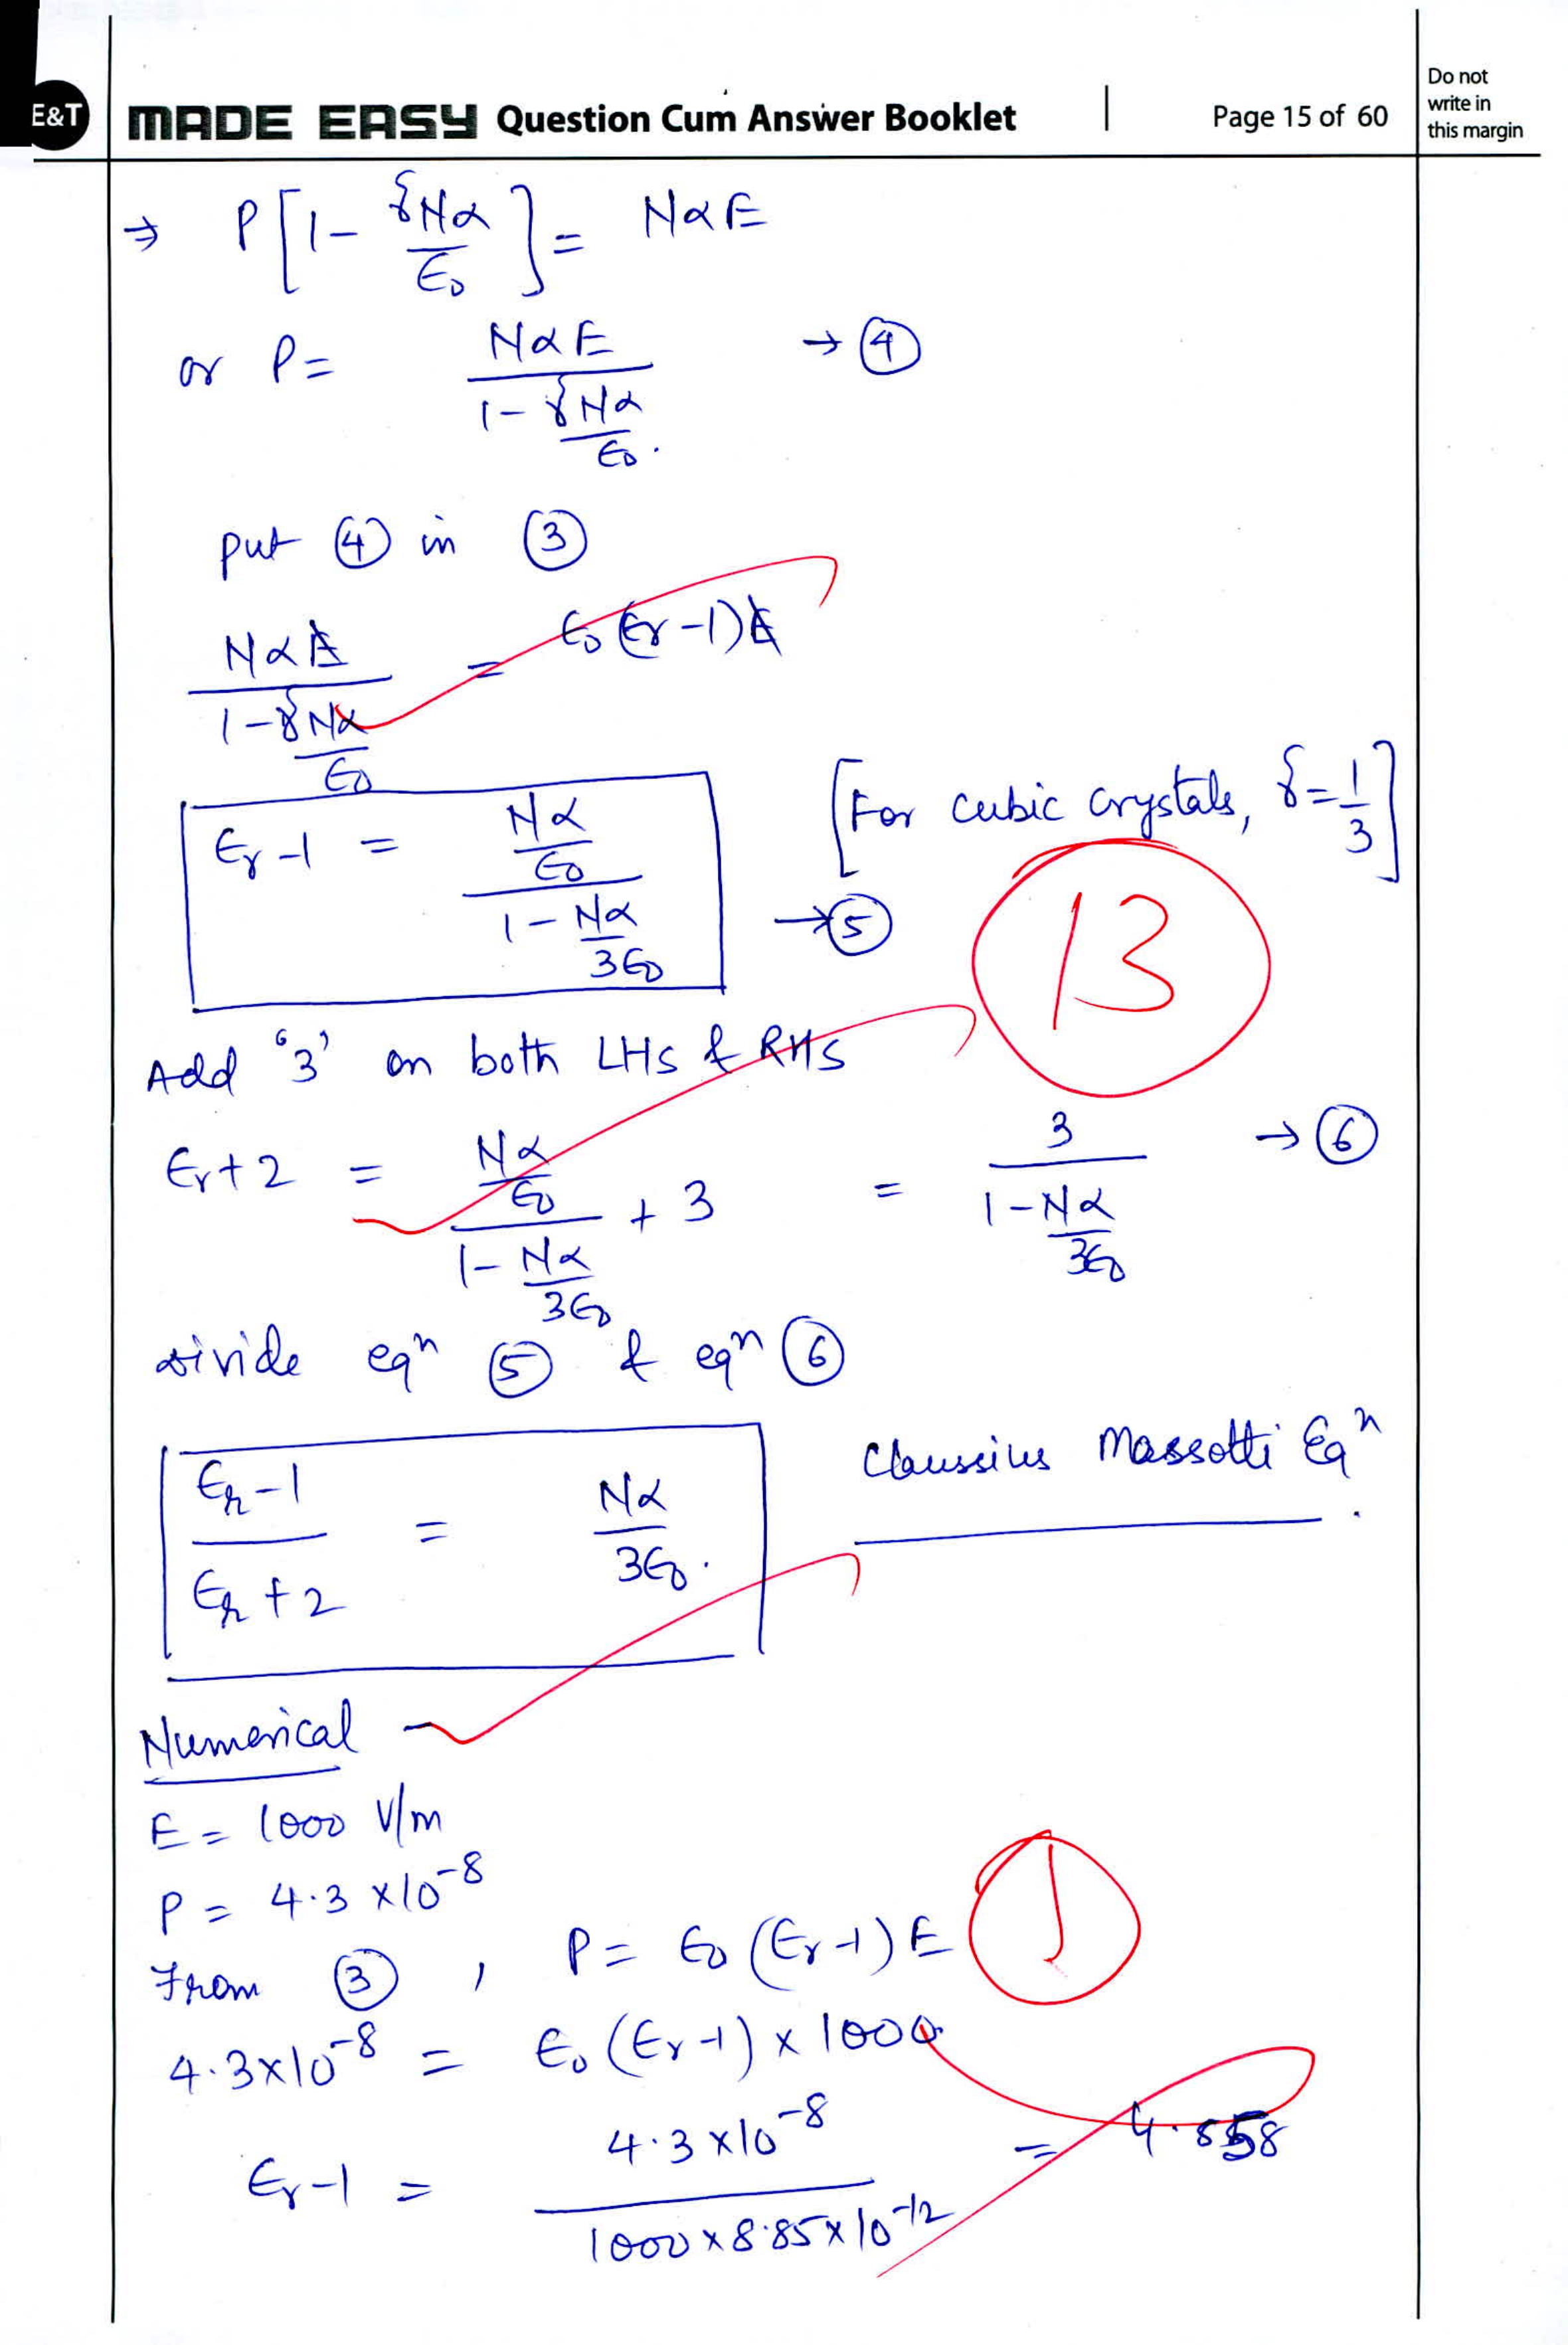 E&T MADE EASY Question Cum Answer Booklet | Page 15 of 60
Do not
write in
this margin
→ P[1 - γNα/ε0] = NαE
or P = NαE / (1 - γNα/ε0) → ④
put ④ in ③
NαE / (1 - γNα/ε0) = ε0(εr-1)E
εr-1 = (Nα/ε0) / (1 - Nα/3ε0) → ⑤ [For cubic crystals, γ = 1/3]
13
Add '3' on both LHS & RHS
εr+2 = (Nα/ε0) / (1 - Nα/3ε0) + 3 = 3 / (1 - Nα/3ε0) → ⑥
divide eqn ⑤ & eqn ⑥
(εr-1) / (εr+2) = Nα/3ε0. Claussius Massotti Eqn.
Numerical
E = 1000 V/m
P = 4.3 x10^-8
From ③, P = ε0(εr-1)E
1
4.3x10^-8 = ε0(εr-1) x 1000
εr-1 = 4.3x10^-8 / (1000 x 8.85 x 10^-12) = 4.858